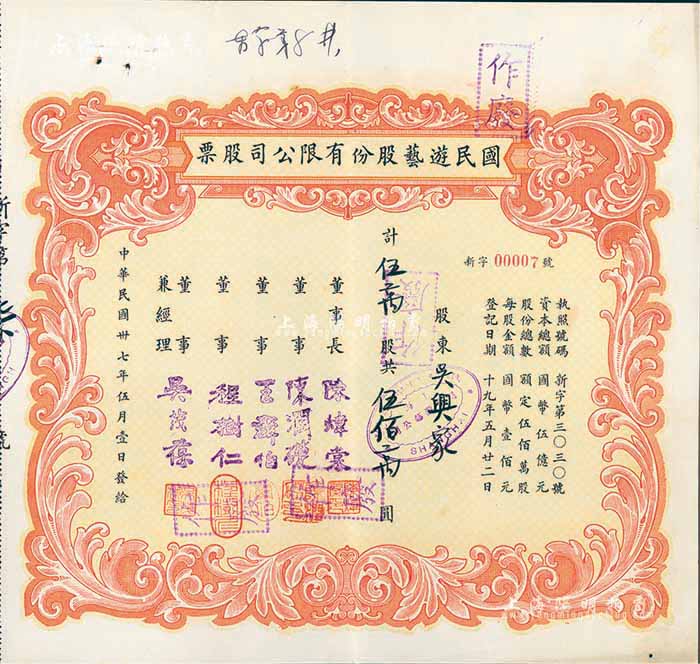 作廢
國民遊藝股份有限公司股票
新字 00007 號
執照號碼 新字第三〇三〇號
資本總額 國幣伍億元
股份總數 額定伍佰萬股
每股金額 國幣壹佰元
登記日期 十九年五月廿二日
股東 吳興家
計 伍萬 股共 伍佰萬 圓
董事長 陳
董事 陳潤
董事
董事 程樹仁
董事兼經理 吳茂蓀
中華民國卅七年伍月壹日發給
新字第
號
SHANGHAI
作廢
上海陽明拍賣